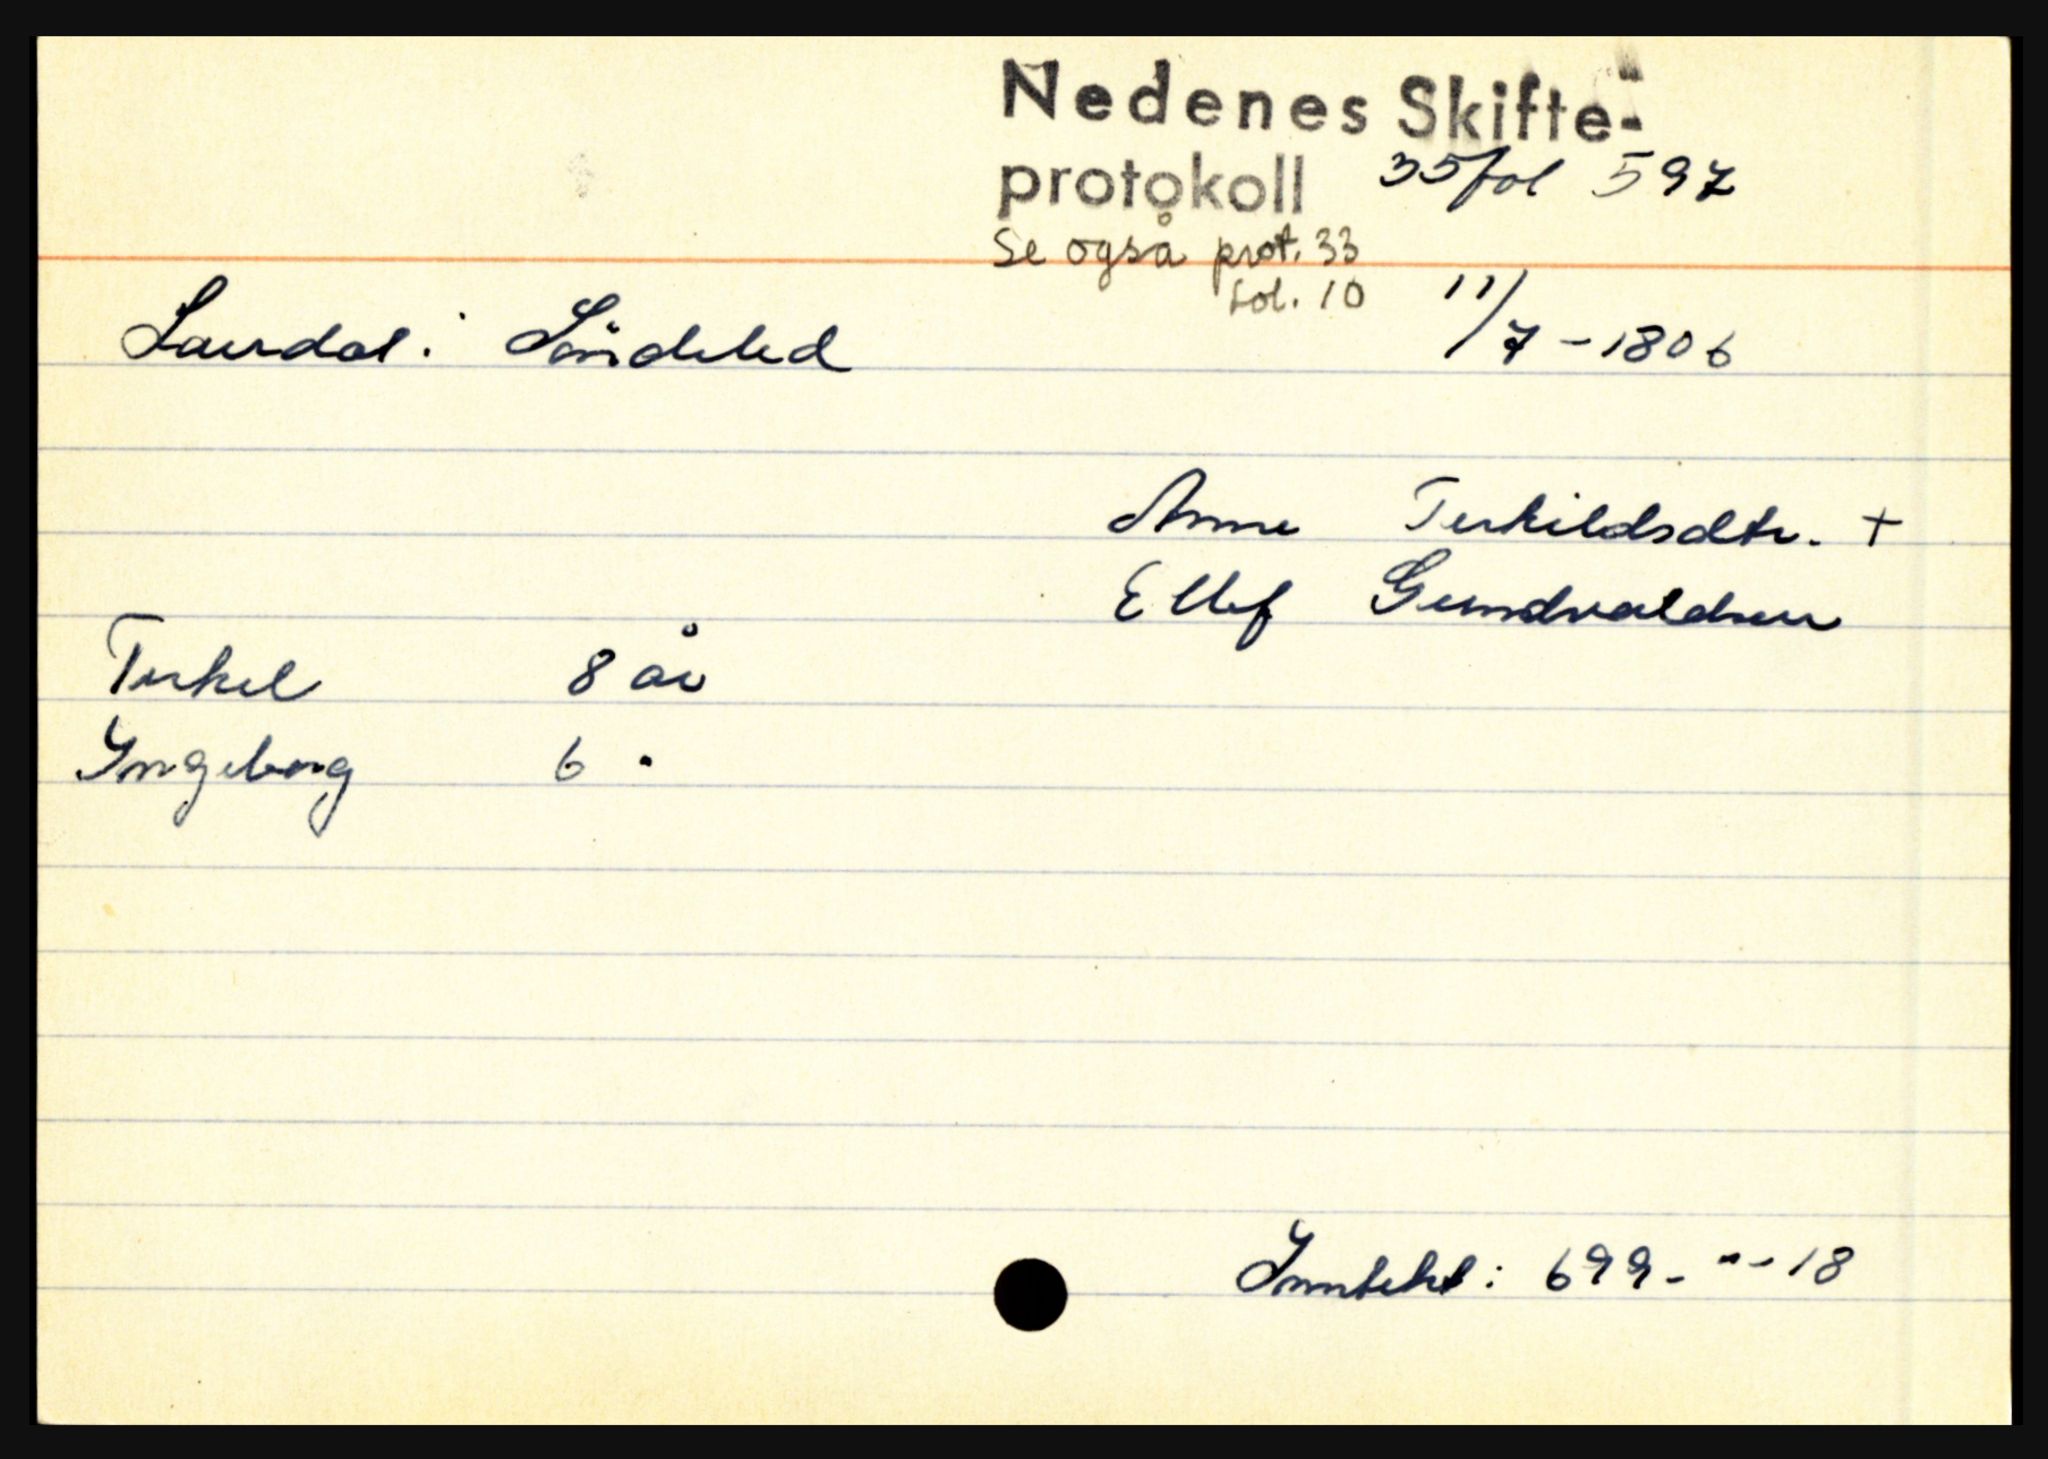 Nedenes Skifte-
protokoll 35 fol 597
Se også prot. 33
fol. 10
Laurdal: Söndeled 11/7 - 1806
Anne Terkildsdtr. +
Ellef Gundvaldsen
Terkel 8 år
Yngeborg 6 "
Inntekt: 699 - " - 18